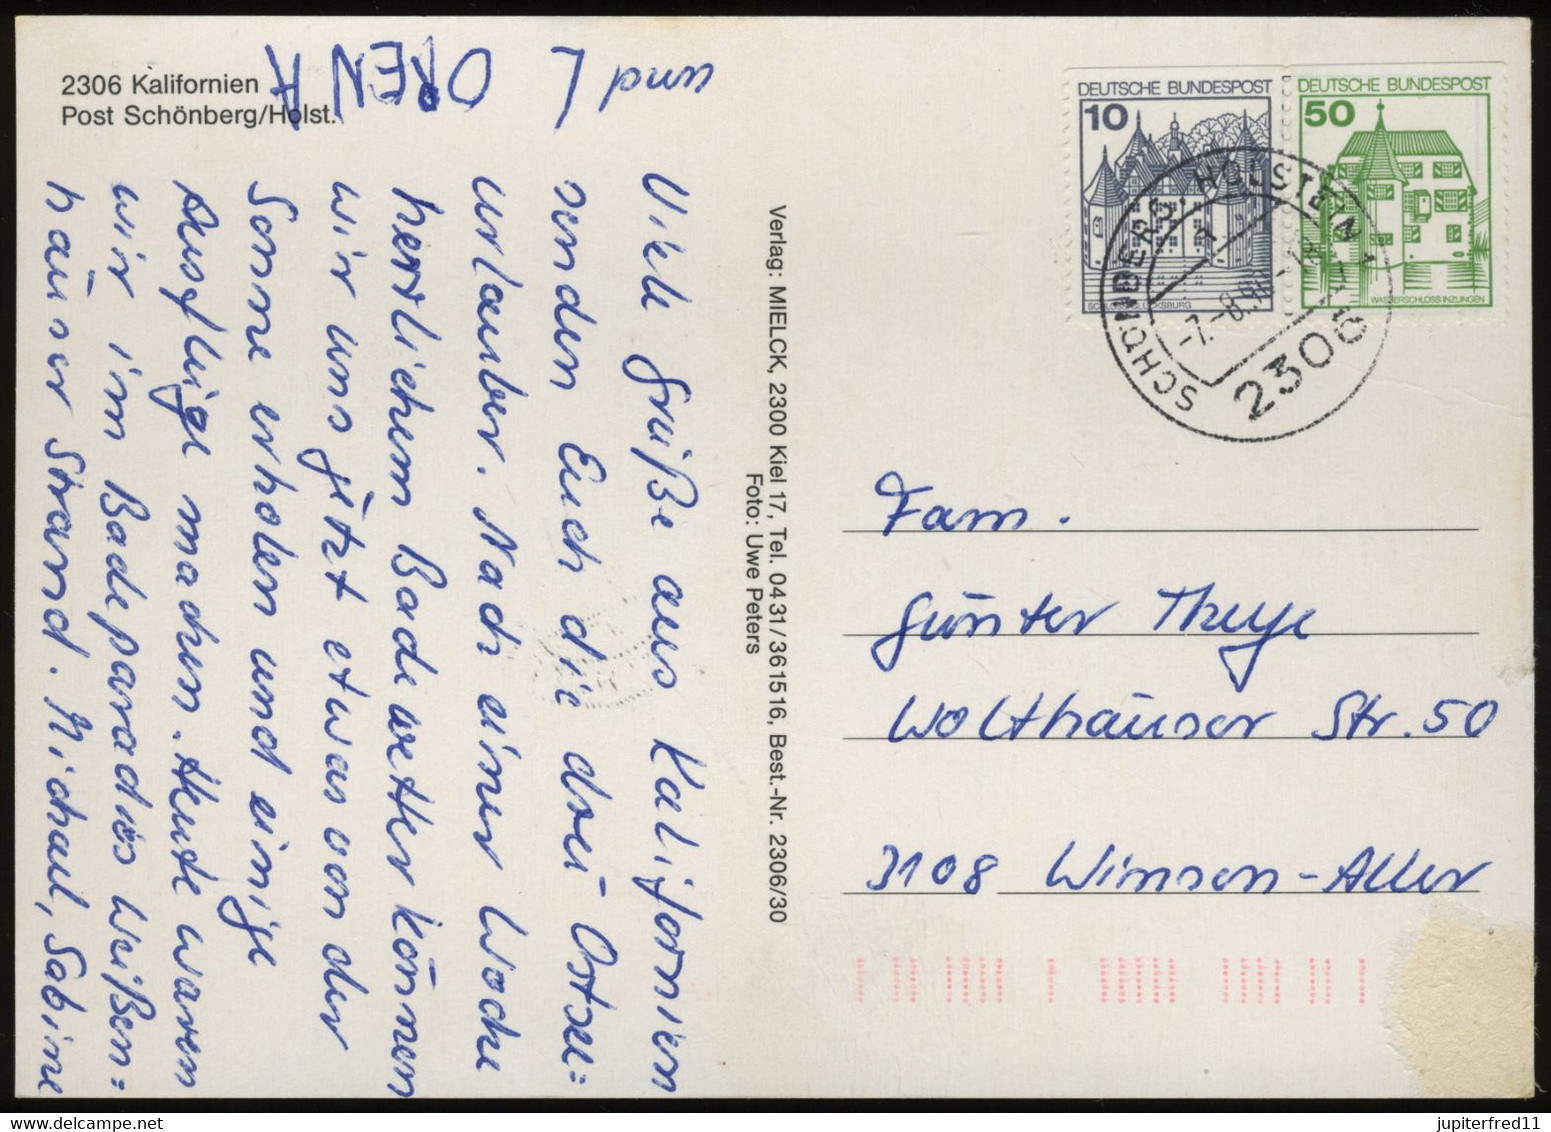 2306 Kalifornien
Post Schönberg/Holst.
Viele Grüße aus Kalifornien
senden Euch die drei Ostsee=
urlauber. Nach einer Woche
herrlichem Badewetter können
wir uns jetzt etwas von der
Sonne erholen und einige
Ausflüge machen. Heute waren
wir im Badeparadies Weißen=
häuser Strand. Michael, Sabine
und L
ORENA
Verlag: MIELCK, 2300 Kiel 17, Tel. 0431/361516, Best.-Nr. 2306/30
Foto: Uwe Peters
DEUTSCHE BUNDESPOST
10
SCHLOSS GLÜCKSBURG
DEUTSCHE BUNDESPOST
50
WASSERSCHLOSS INZLINGEN
SCHÖNBERG, HOLSTEIN
2306
Fam.
Günter Theye
Wolthauser Str. 50
3108 Winsen-Aller
jupiterfred11